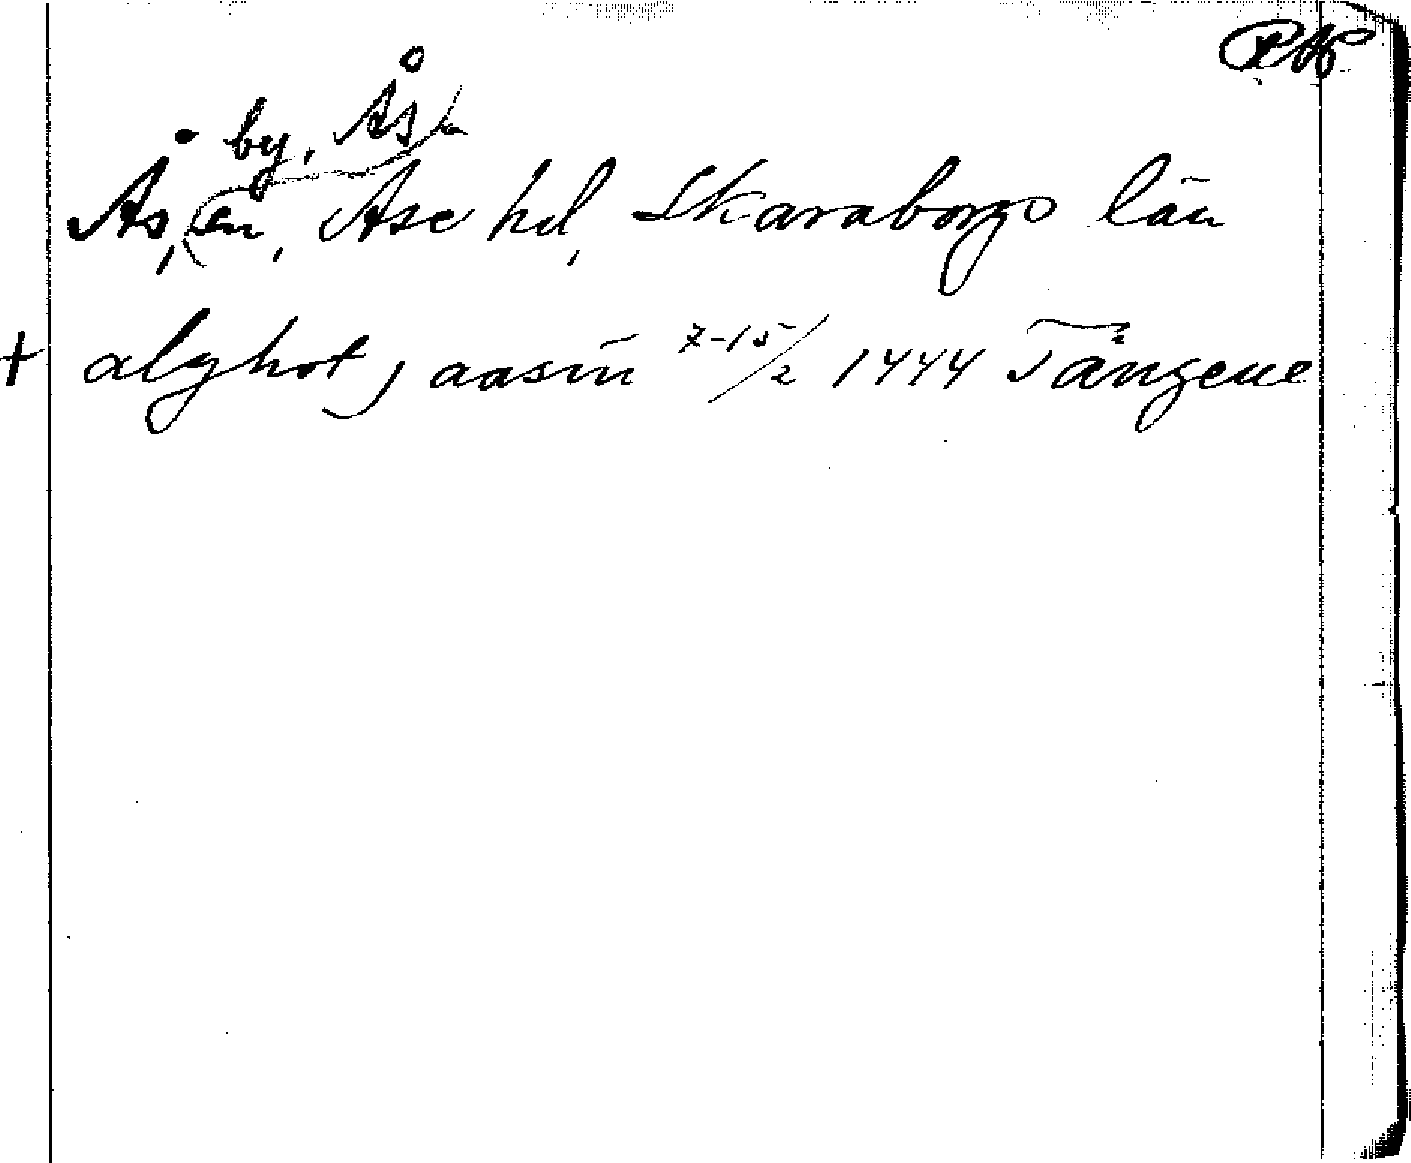 by, Ås
Ås, sn, Åse hd, Skaraborgs län
+ alghot j aasm 7-15/2 1444 Tängene